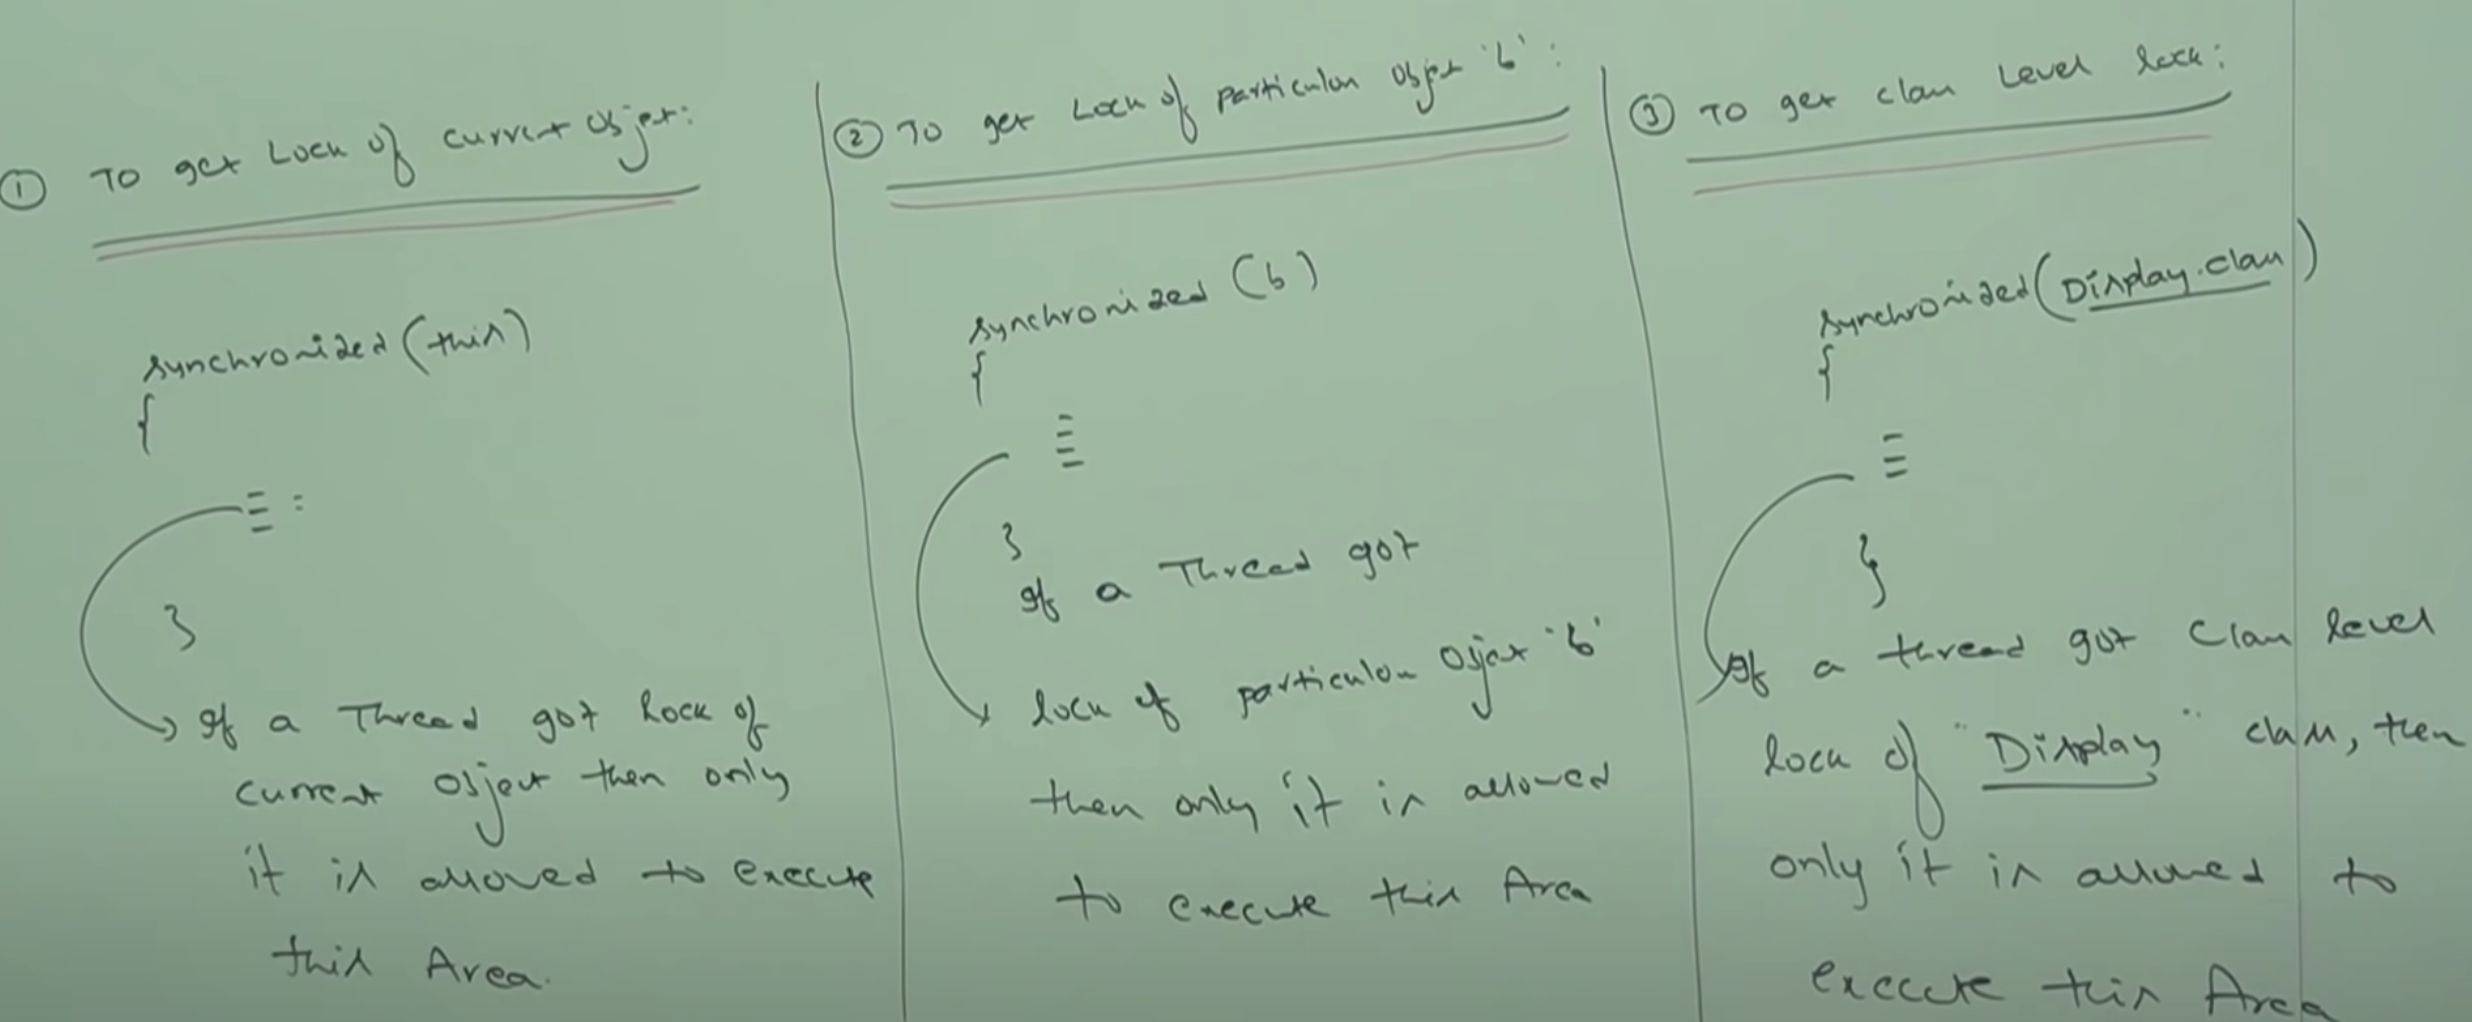 ① To get Lock of current object:
synchronized (this)
{
}
If a Thread got Lock of
current object then only
it is allowed to execute
this Area.
② To get Lock of particular object 'b':
synchronized (b)
{
}
If a Thread got
lock of particular object 'b'
then only it is allowed
to execute this Area
③ To get class Level lock:
synchronized (Display.class)
{
}
If a thread got class level
lock of "Display" class, then
only it is allowed to
execute this Area